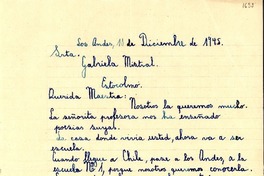 Los Andes, 11 de Diciembre de 1945.
Srta.
Gabriela Mistral.
Estocolmo.
Querida Maestra:
Nosotros la queremos mucho.
La señorita profesora nos ha enseñado
poesías suyas.
La casa donde vivía usted, ahora va a ser
escuela.
Cuando llegue a Chile, pase a los Andes, a la
escuela Nº 1, porque nosotros queremos conocerla.